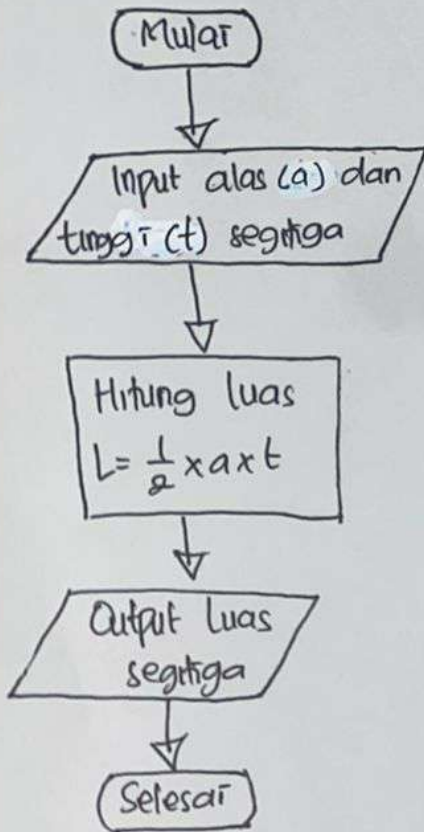 Mulai
Input alas (a) dan
tinggi (t) segitiga
Hitung luas
L = 1/2 x a x t
Output luas
segitiga
Selesai